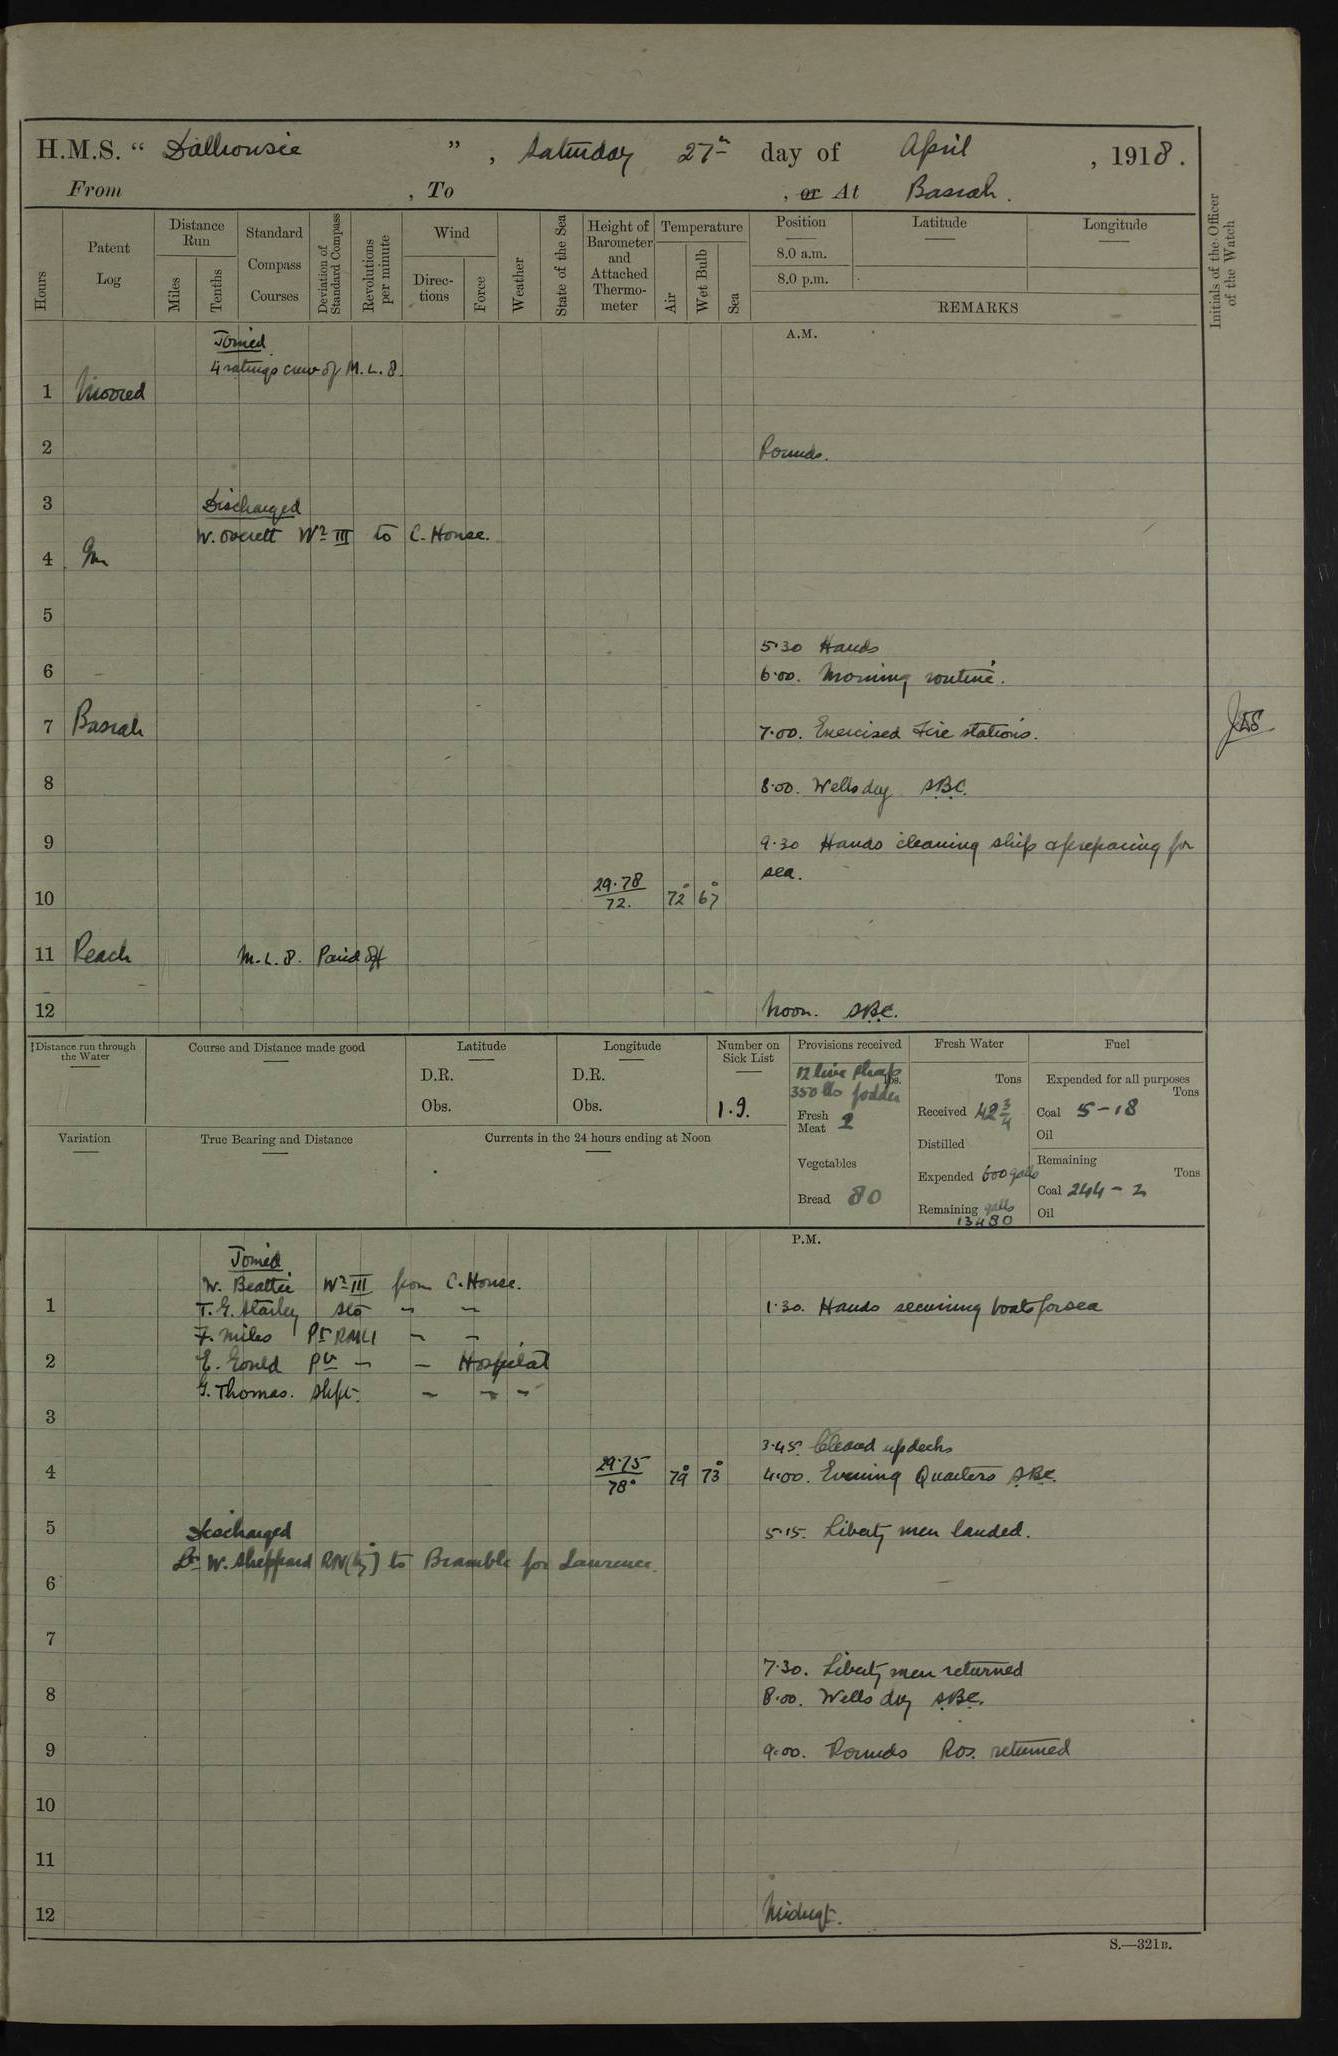 H.M.S. “ Dalhousie ” , Saturday 27th day of April , 1918 .
From , To , or At Basrah .
Hours
Patent Log
Distance Run
Miles
Tenths
Standard Compass Courses
Deviation of Standard Compass
Revolutions per minute
Wind
Direc-tions
Force
Weather
State of the Sea
Height of Barometer and Attached Thermo-meter
Temperature
Air
Wet Bulb
Sea
Position
8.0 a.m.
8.0 p.m.
Latitude
Longitude
REMARKS
Initials of the Officer of the Watch
A.M.
Joined
4 ratings crew of M.L.8.
1 Moored
2 Rounds.
3 Discharged
W. Overett Wr III to C. House.
4 In
5
5.30 Hands
6 6.00. Morning routine.
7 Basrah 7.00. Exercised Fire stations.
8 8.00. Wells dry SBC.
9 9.30 Hands cleaning ship & preparing for
sea.
10 29.78 72° 67°
72.
11 Reach M.L.8. Paid off
12 Noon. SBC.
Distance run through the Water
Course and Distance made good
Latitude
D.R.
Obs.
Longitude
D.R.
Obs.
Number on Sick List
1.9.
Provisions received
12 live sheep lbs.
350 lbs fodder
Fresh Meat 2
Vegetables
Bread 80
Fresh Water
Tons
Received 42 3/4
Distilled
Expended 600 galls
Remaining galls
13480
Fuel
Expended for all purposes
Tons
Coal 5-18
Oil
Remaining
Tons
Coal 244-2
Oil
Variation
True Bearing and Distance
Currents in the 24 hours ending at Noon
P.M.
Joined
W. Beattie Wr III from C. House.
1 T.G. Starley Sto " " 1.30. Hands securing boats for sea
F. Miles Pt RMLI " "
2 E. Gould Pte " " Hospital
G. Thomas. " " "
3
3.45. Cleared up decks
4 29.75 79° 73° 4.00. Evening Quarters SBC.
78°
5 Discharged 5.15. Liberty men landed.
Lt W. Sheppard to Bramble for Lawrence.
6
7
7.30. Liberty men returned
8 8.00. Wells dry SBC.
9 9.00. Rounds returned
10
11
12 Midngt.
S.—321B.